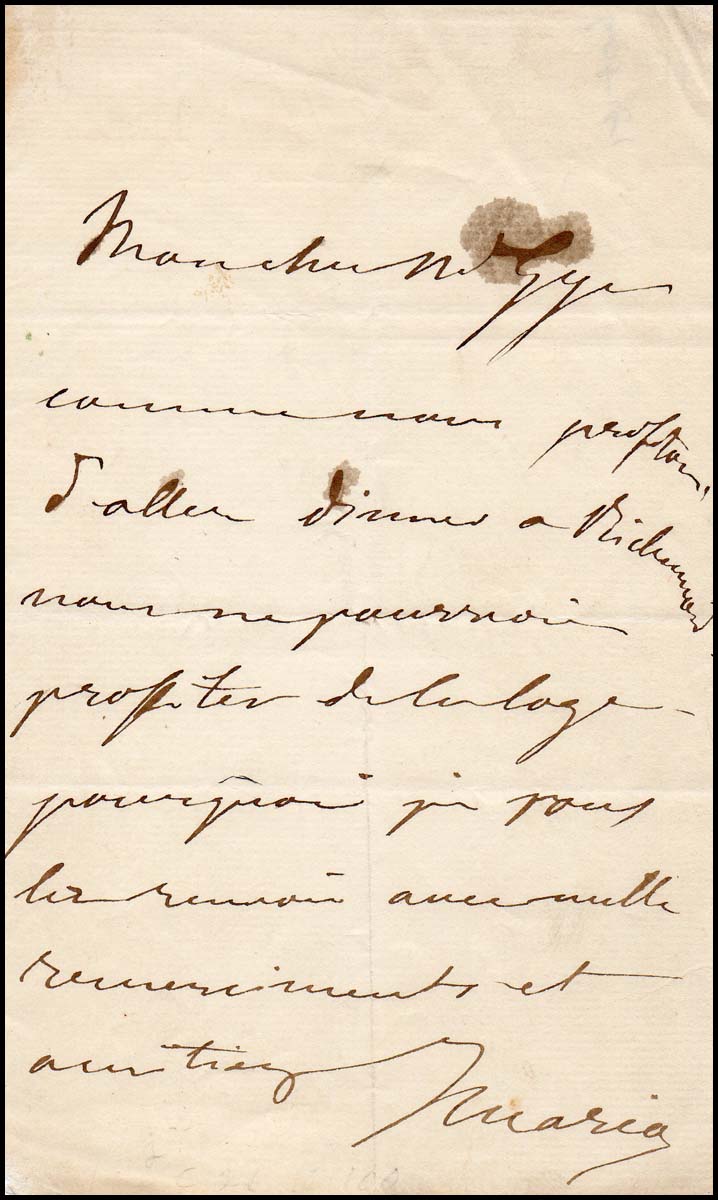 Mon cher Mr Gye
comme nous profitons
d'aller dinner a Richemond
nous ne pourrois
profiter de la loge -
pourquoi je vous
la renvoi avec mille
remerciments et
amitiez Mario